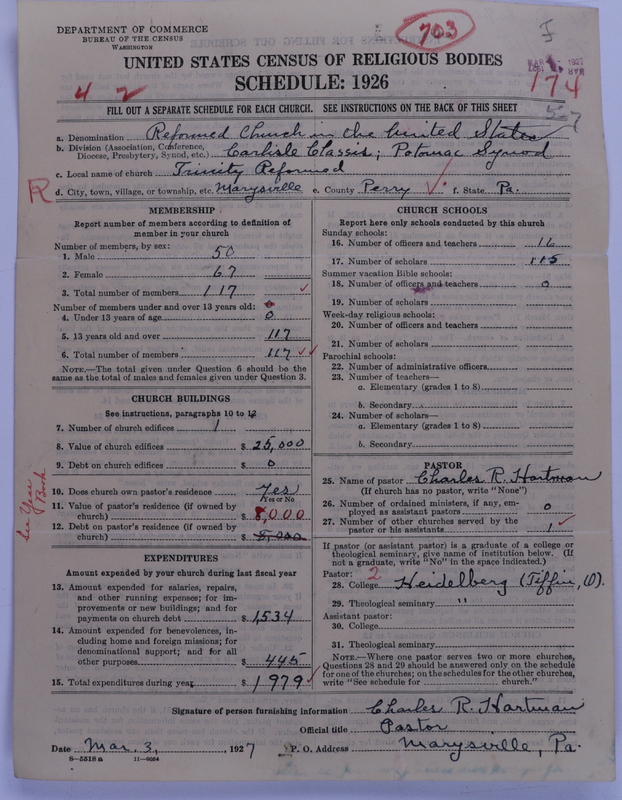 DEPARTMENT OF COMMERCE
BUREAU OF THE CENSUS
WASHINGTON
703
I
UNITED STATES CENSUS OF RELIGIOUS BODIES
SCHEDULE: 1926
4 2
174
57
FILL OUT A SEPARATE SCHEDULE FOR EACH CHURCH. SEE INSTRUCTIONS ON THE BACK OF THIS SHEET
a. Denomination Reformed Church in the United States
b. Division (Association, Conference, Diocese, Presbytery, Synod, etc.) Carlisle Classis; Potomac Synod
c. Local name of church Trinity Reformed
R
d. City, town, village, or township, etc. Marysville e. County Perry f. State Pa.
MEMBERSHIP
Report number of members according to definition of
member in your church
Number of members, by sex:
1. Male 50
2. Female 67
3. Total number of members 117
Number of members under and over 13 years old:
4. Under 13 years of age 0
5. 13 years old and over 117
6. Total number of members 117
NOTE.—The total given under Question 6 should be
same as the total of males and females given under Question 3.
CHURCH BUILDINGS
See instructions, paragraphs 10 to 12
7. Number of church edifices 1
8. Value of church edifices $ 25,000
9. Debt on church edifices $ 0
10. Does church own pastor's residence Yes
Yes or No
11. Value of pastor's residence (if owned by
church) $ 8,000
12. Debt on pastor's residence (if owned by
church) $ 8,000
See Year
Book
EXPENDITURES
Amount expended by your church during last fiscal year
13. Amount expended for salaries, repairs,
and other running expenses; for im-
provements or new buildings; and for
payments on church debt $ 1,534
14. Amount expended for benevolences, in-
cluding home and foreign missions; for
denominational support; and for all
other purposes $ 445
15. Total expenditures during year $ 1979
CHURCH SCHOOLS
Report here only schools conducted by this church
Sunday schools:
16. Number of officers and teachers 16
17. Number of scholars 115
Summer vacation Bible schools:
18. Number of officers and teachers 0
19. Number of scholars
Week-day religious schools:
20. Number of officers and teachers
21. Number of scholars
Parochial schools:
22. Number of administrative officers
23. Number of teachers—
a. Elementary (grades 1 to 8)
b. Secondary
24. Number of scholars—
a. Elementary (grades 1 to 8)
b. Secondary
PASTOR
25. Name of pastor Charles R. Hartman
(If church has no pastor, write "None")
26. Number of ordained ministers, if any, em-
ployed as assistant pastors 0
27. Number of other churches served by the
pastor or his assistants 1
If pastor (or assistant pastor) is a graduate of a college or
theological seminary, give name of institution below. (If
not a graduate, write "No" in the space indicated.)
Pastor: 2
28. College Heidelberg (Tiffin, O).
29. Theological seminary "
Assistant pastor:
30. College
31. Theological seminary
NOTE.—Where one pastor serves two or more churches,
Questions 28 and 29 should be answered only on the schedule
for one of the churches; on the schedules for the other churches,
write "See schedule for church."
Signature of person furnishing information Charles R. Hartman
Official title Pastor
Date Mar. 3, 1927 P. O. Address Marysville, Pa.
8—5518a 11—9054